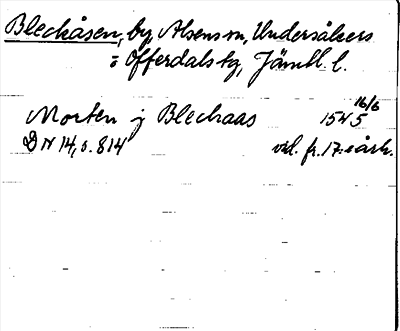 Bleckåsen, by, Alsens sn, Undersåkers
o Offerdals tg, Jämtl. l.
Morten j Bleckaas 1545 16/6
DN 14, s. 814 vid. fr. 17. årh.